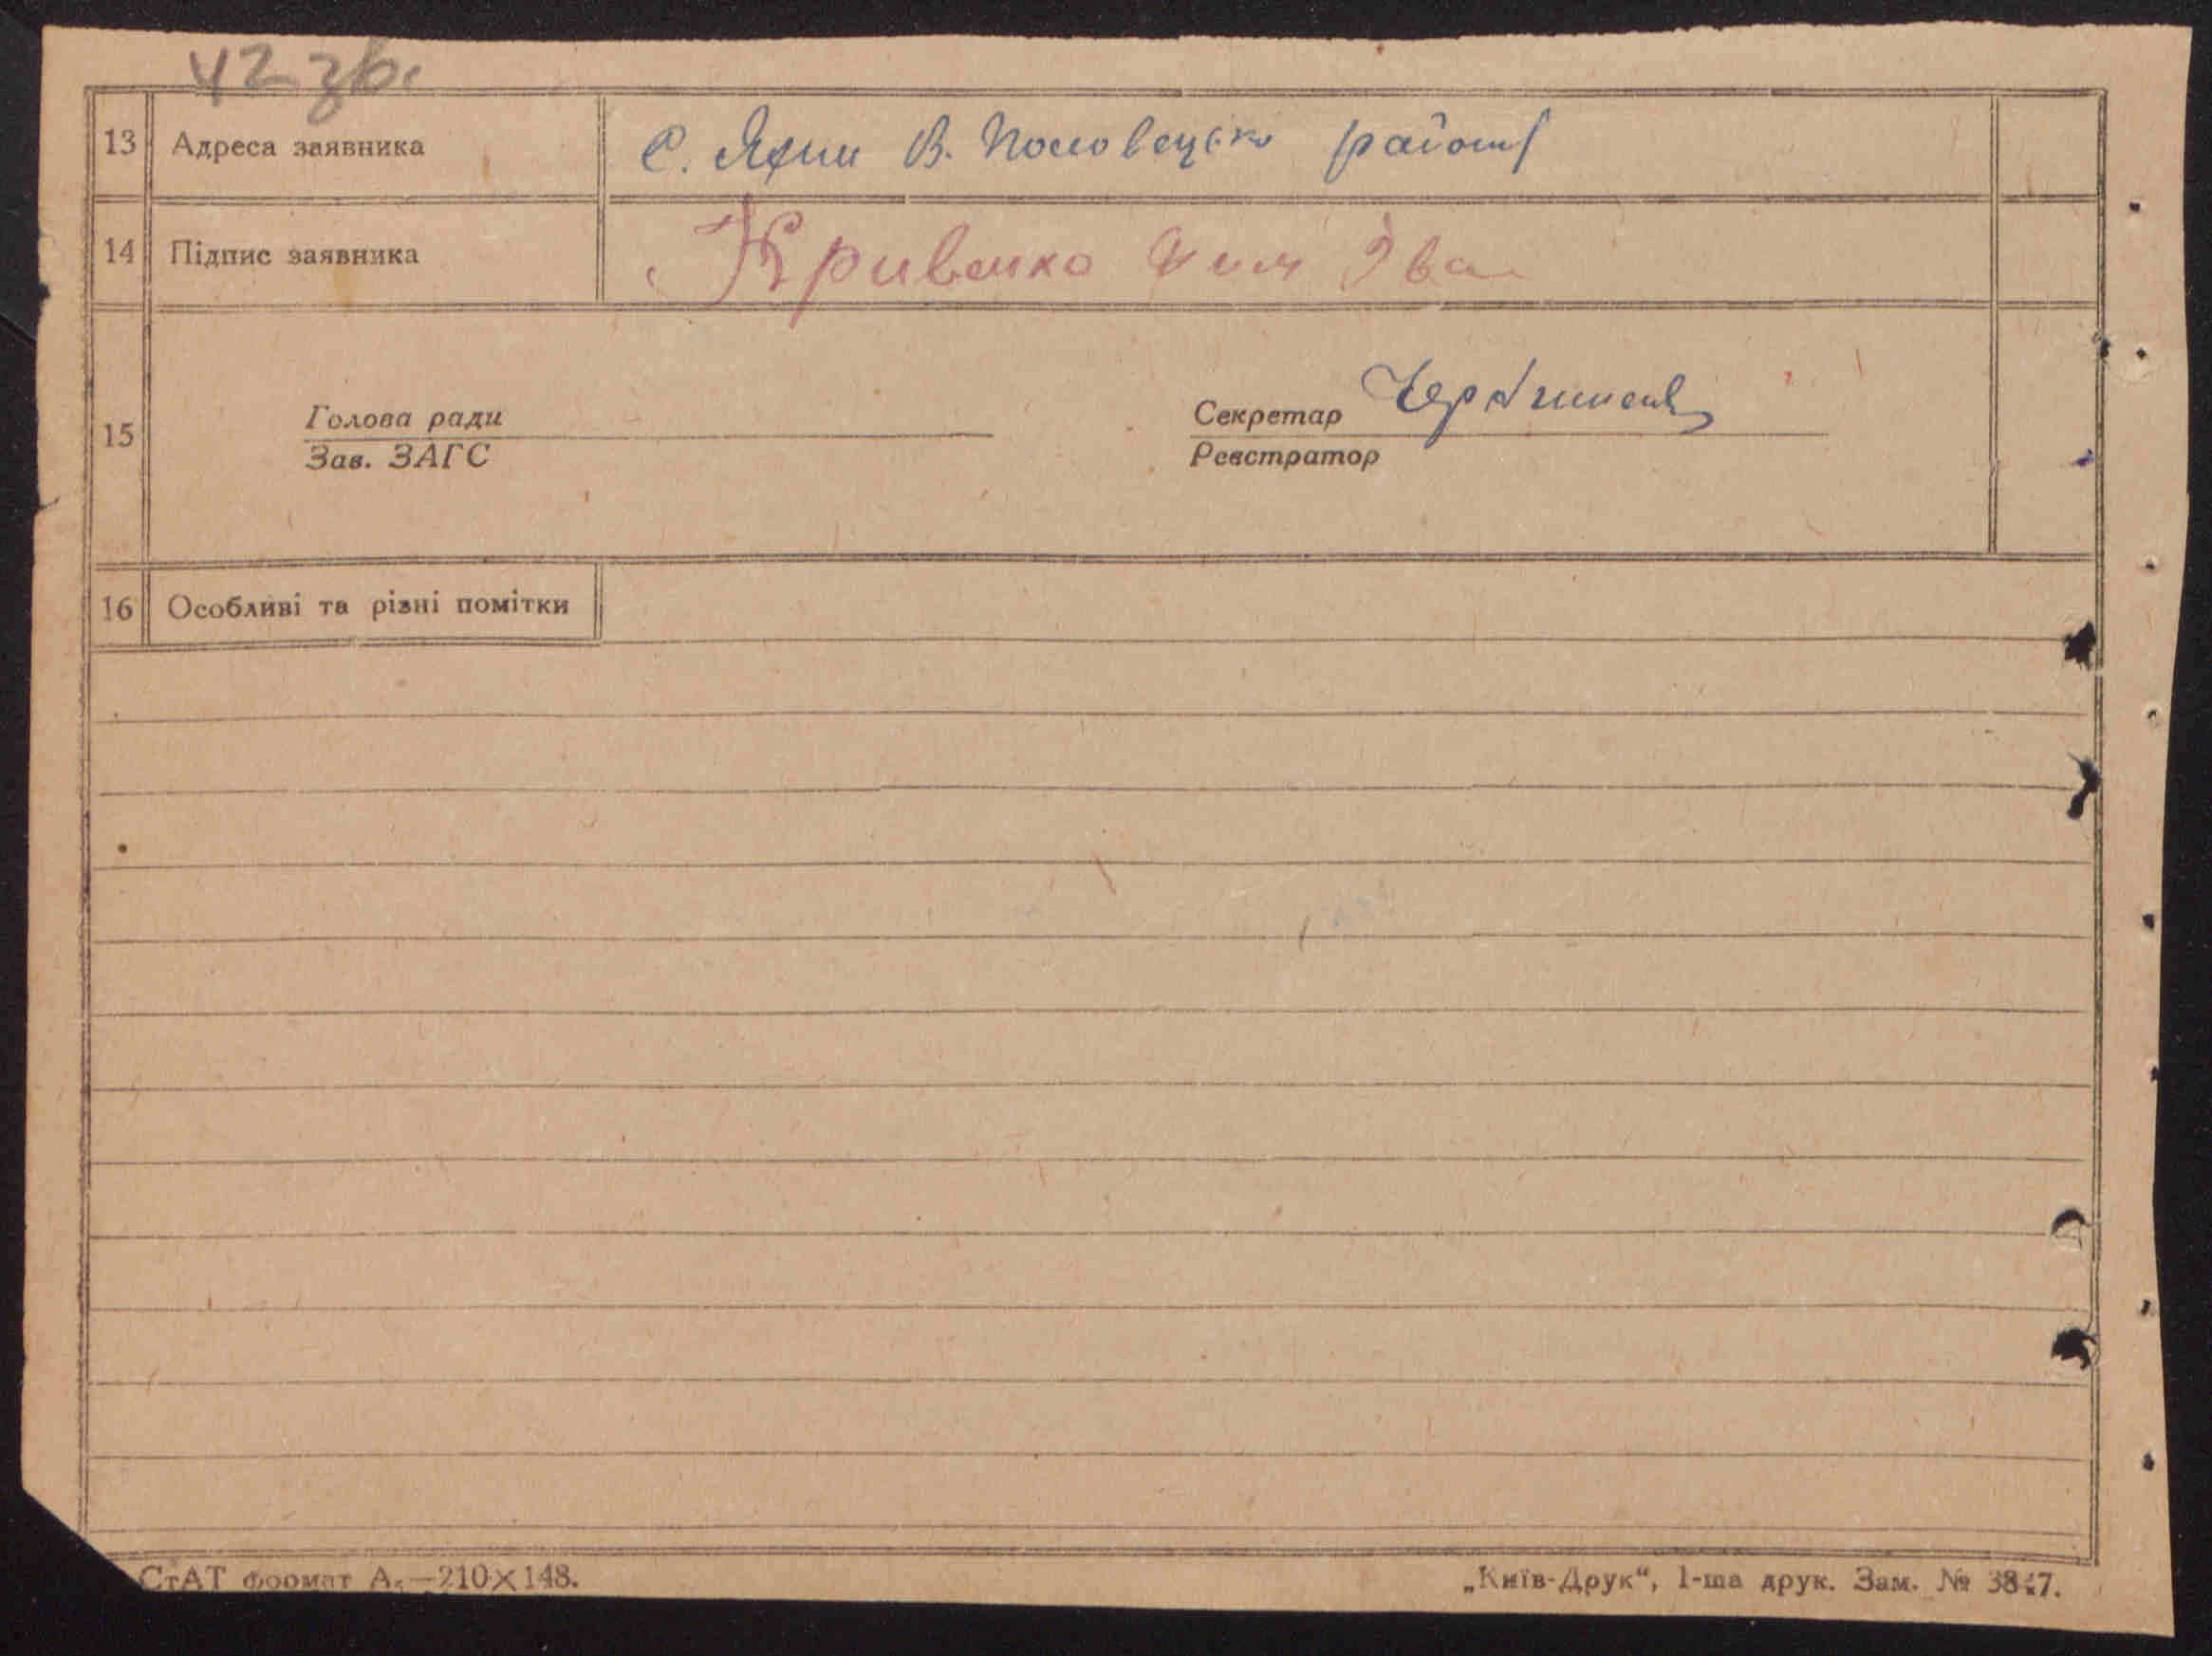 42 зв.
13 Адреса заявника С. Яхни В. Половецько району
14 Підпис заявника Кривенко Яким Іва
15 Голова ради Секретар
Зав. ЗАГС Реєстратор
16 Особливі та різні помітки
СтАТ формат А₅—210×148. „Київ-Друк“, 1-ша друк. Зам. №